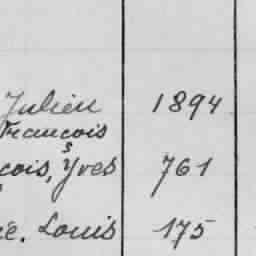 Julien 1894
Francois
s
cois, Yves 761
ie. Louis 175